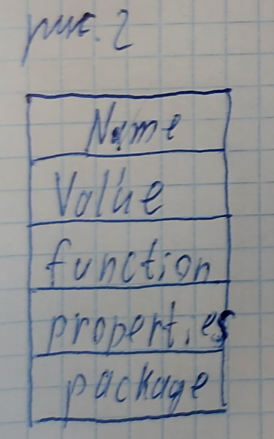 рис. 2
Name
Value
function
properties
package